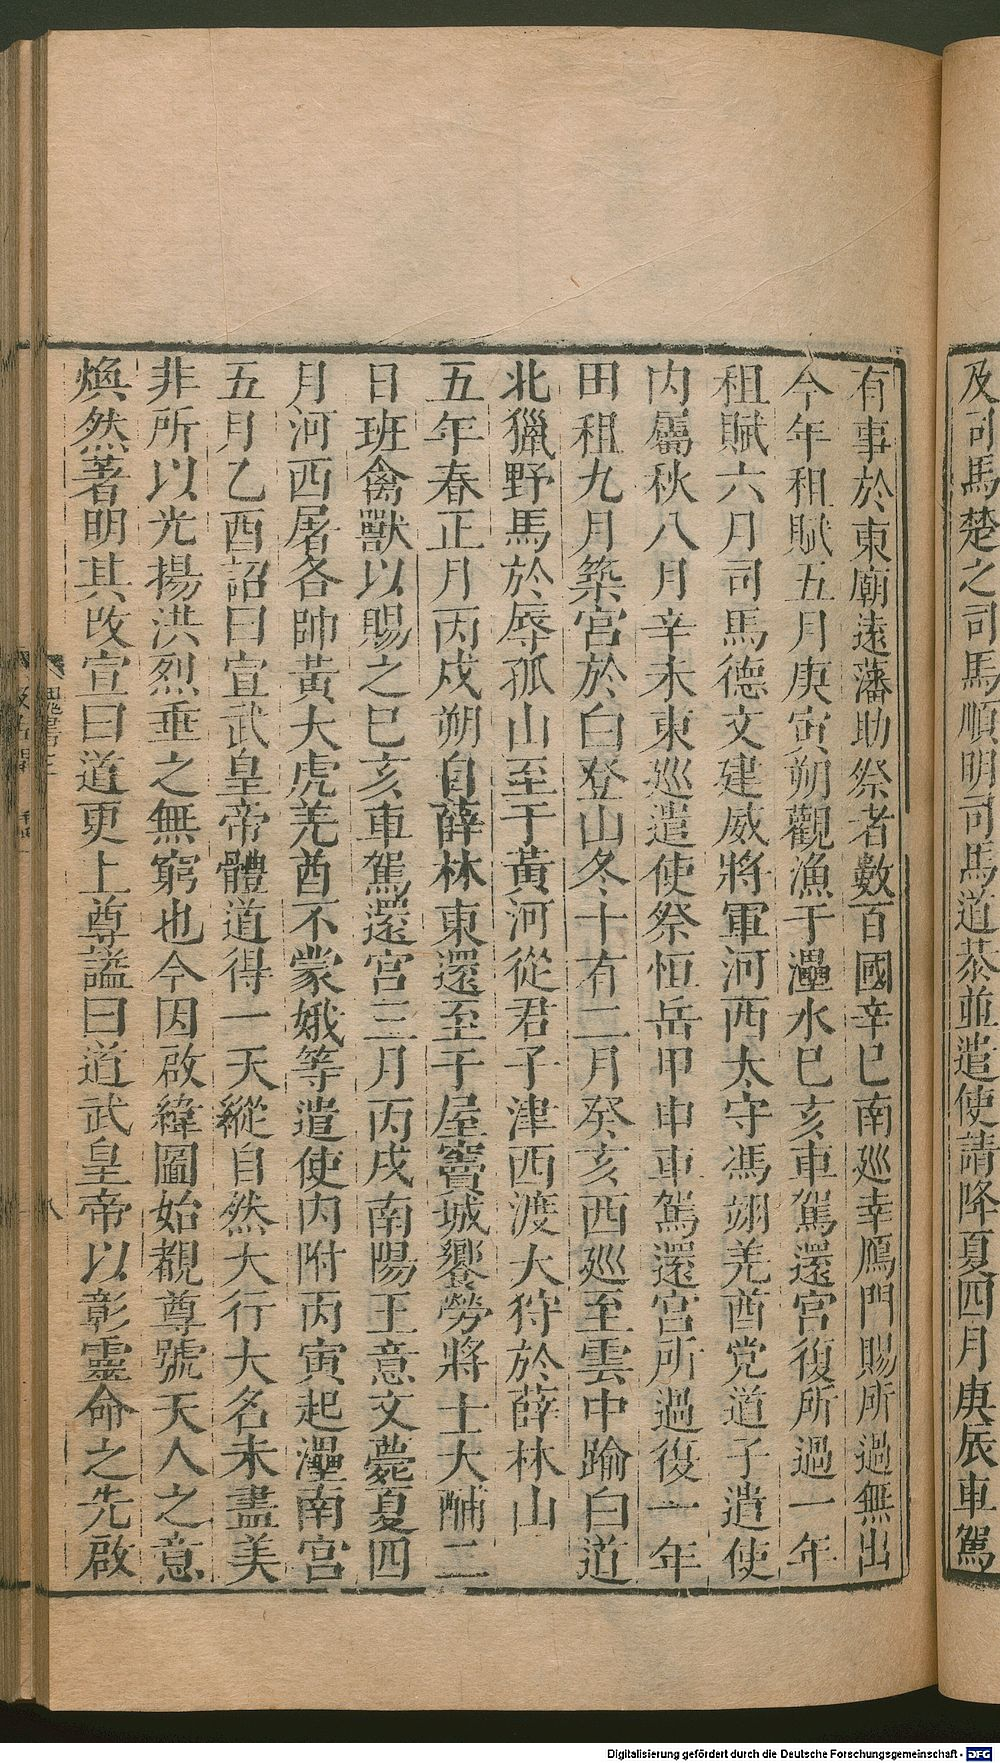 及司馬楚之司馬順明司馬道恭並遣使請降夏四月庚辰車駕
有事於東廟遠藩助祭者數百國辛巳南廵幸鴈門賜所過無出
今年租賦五月庚寅朔觀漁于㶟水巳亥車駕還宮復所過一年
租賦六月司馬德文建威將軍河西太守馮翊羌酋党道子遣使
内屬秋八月辛未東廵遣使祭恒岳甲申車駕還宮所過復一年
田租九月築宮於白登山冬十有二月癸亥西廵至雲中踰白道
北獵野馬於辱孤山至于黃河從君子津西渡大狩於薛林山
五年春正月丙戍朔自薛林東還至于屋竇城饗勞將士大酺二
日班禽獸以賜之巳亥車駕還宮三月丙戍南陽王意文薨夏四
月河西屠各帥黃大虎羌酋不蒙娥等遣使内附丙寅起㶟南宮
五月乙酉詔曰宣武皇帝體道得一天縱自然大行大名未盡美
非所以光揚洪烈垂之無窮也今因啟緯圖始覩尊號天人之意
煥然著明其改宣曰道更上尊謚曰道武皇帝以彰靈命之先啟
八
Digitalisierung gefördert durch die Deutsche Forschungsgemeinschaft - DFG